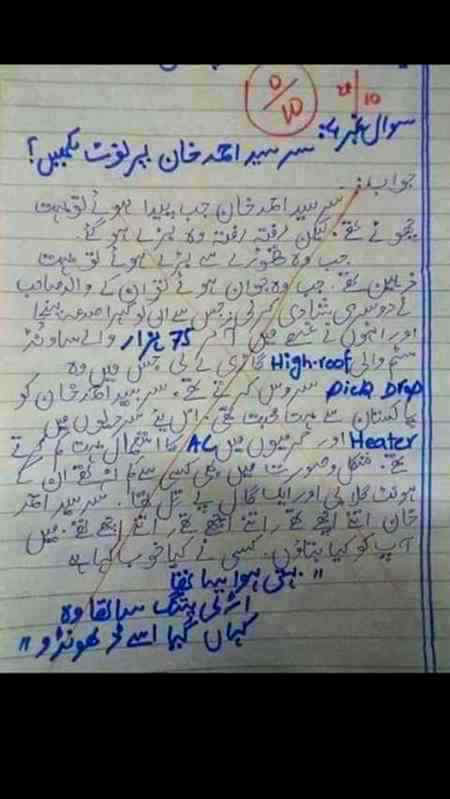 0/10
سوال نمبر 4: سر سید احمد خان پر نوٹ لکھیں؟
جواب: سر سید احمد خان جب پیدا ہوئے تو بہت
چھوٹے تھے۔ لیکن رفتہ رفتہ وہ بڑے ہو گئے
جب وہ تھوڑے سے بڑے ہوئے تو بہت
ذہین تھے۔ جب وہ جوان ہوئے تو ان کے والد صاحب
نے دوسری شادی کر لی جس سے ان کو گہرا صدمہ پہنچا
اور انہوں نے غصے میں آکر 75 ہزار والے ساونڈ
سسٹم والی High-roof گاڑی لے لی جس میں وہ
Pick Drop سروس کرتے تھے۔ سر سید احمد خان کو
پاکستان سے بہت محبت تھی اس لیے سردیوں میں
Heater اور گرمیوں میں AC کا استعمال بہت کم کرتے
تھے۔ شکل و صورت میں بھی کسی سے کم نہ تھے ان کے
ہونٹ گلابی اور ایک گال پے تل تھا۔ سر سید احمد
خان اتنے اچھے تھے، اتنے اچھے تھے، اتنے اچھے تھے۔ میں
آپ کو کیا بتاوں۔ کسی نے کیا خوب کہا ہے
" بہتی ہوا سا تھا
اڑتی پتنگ سا تھا وہ
کہاں گیا اسے ڈھونڈو "